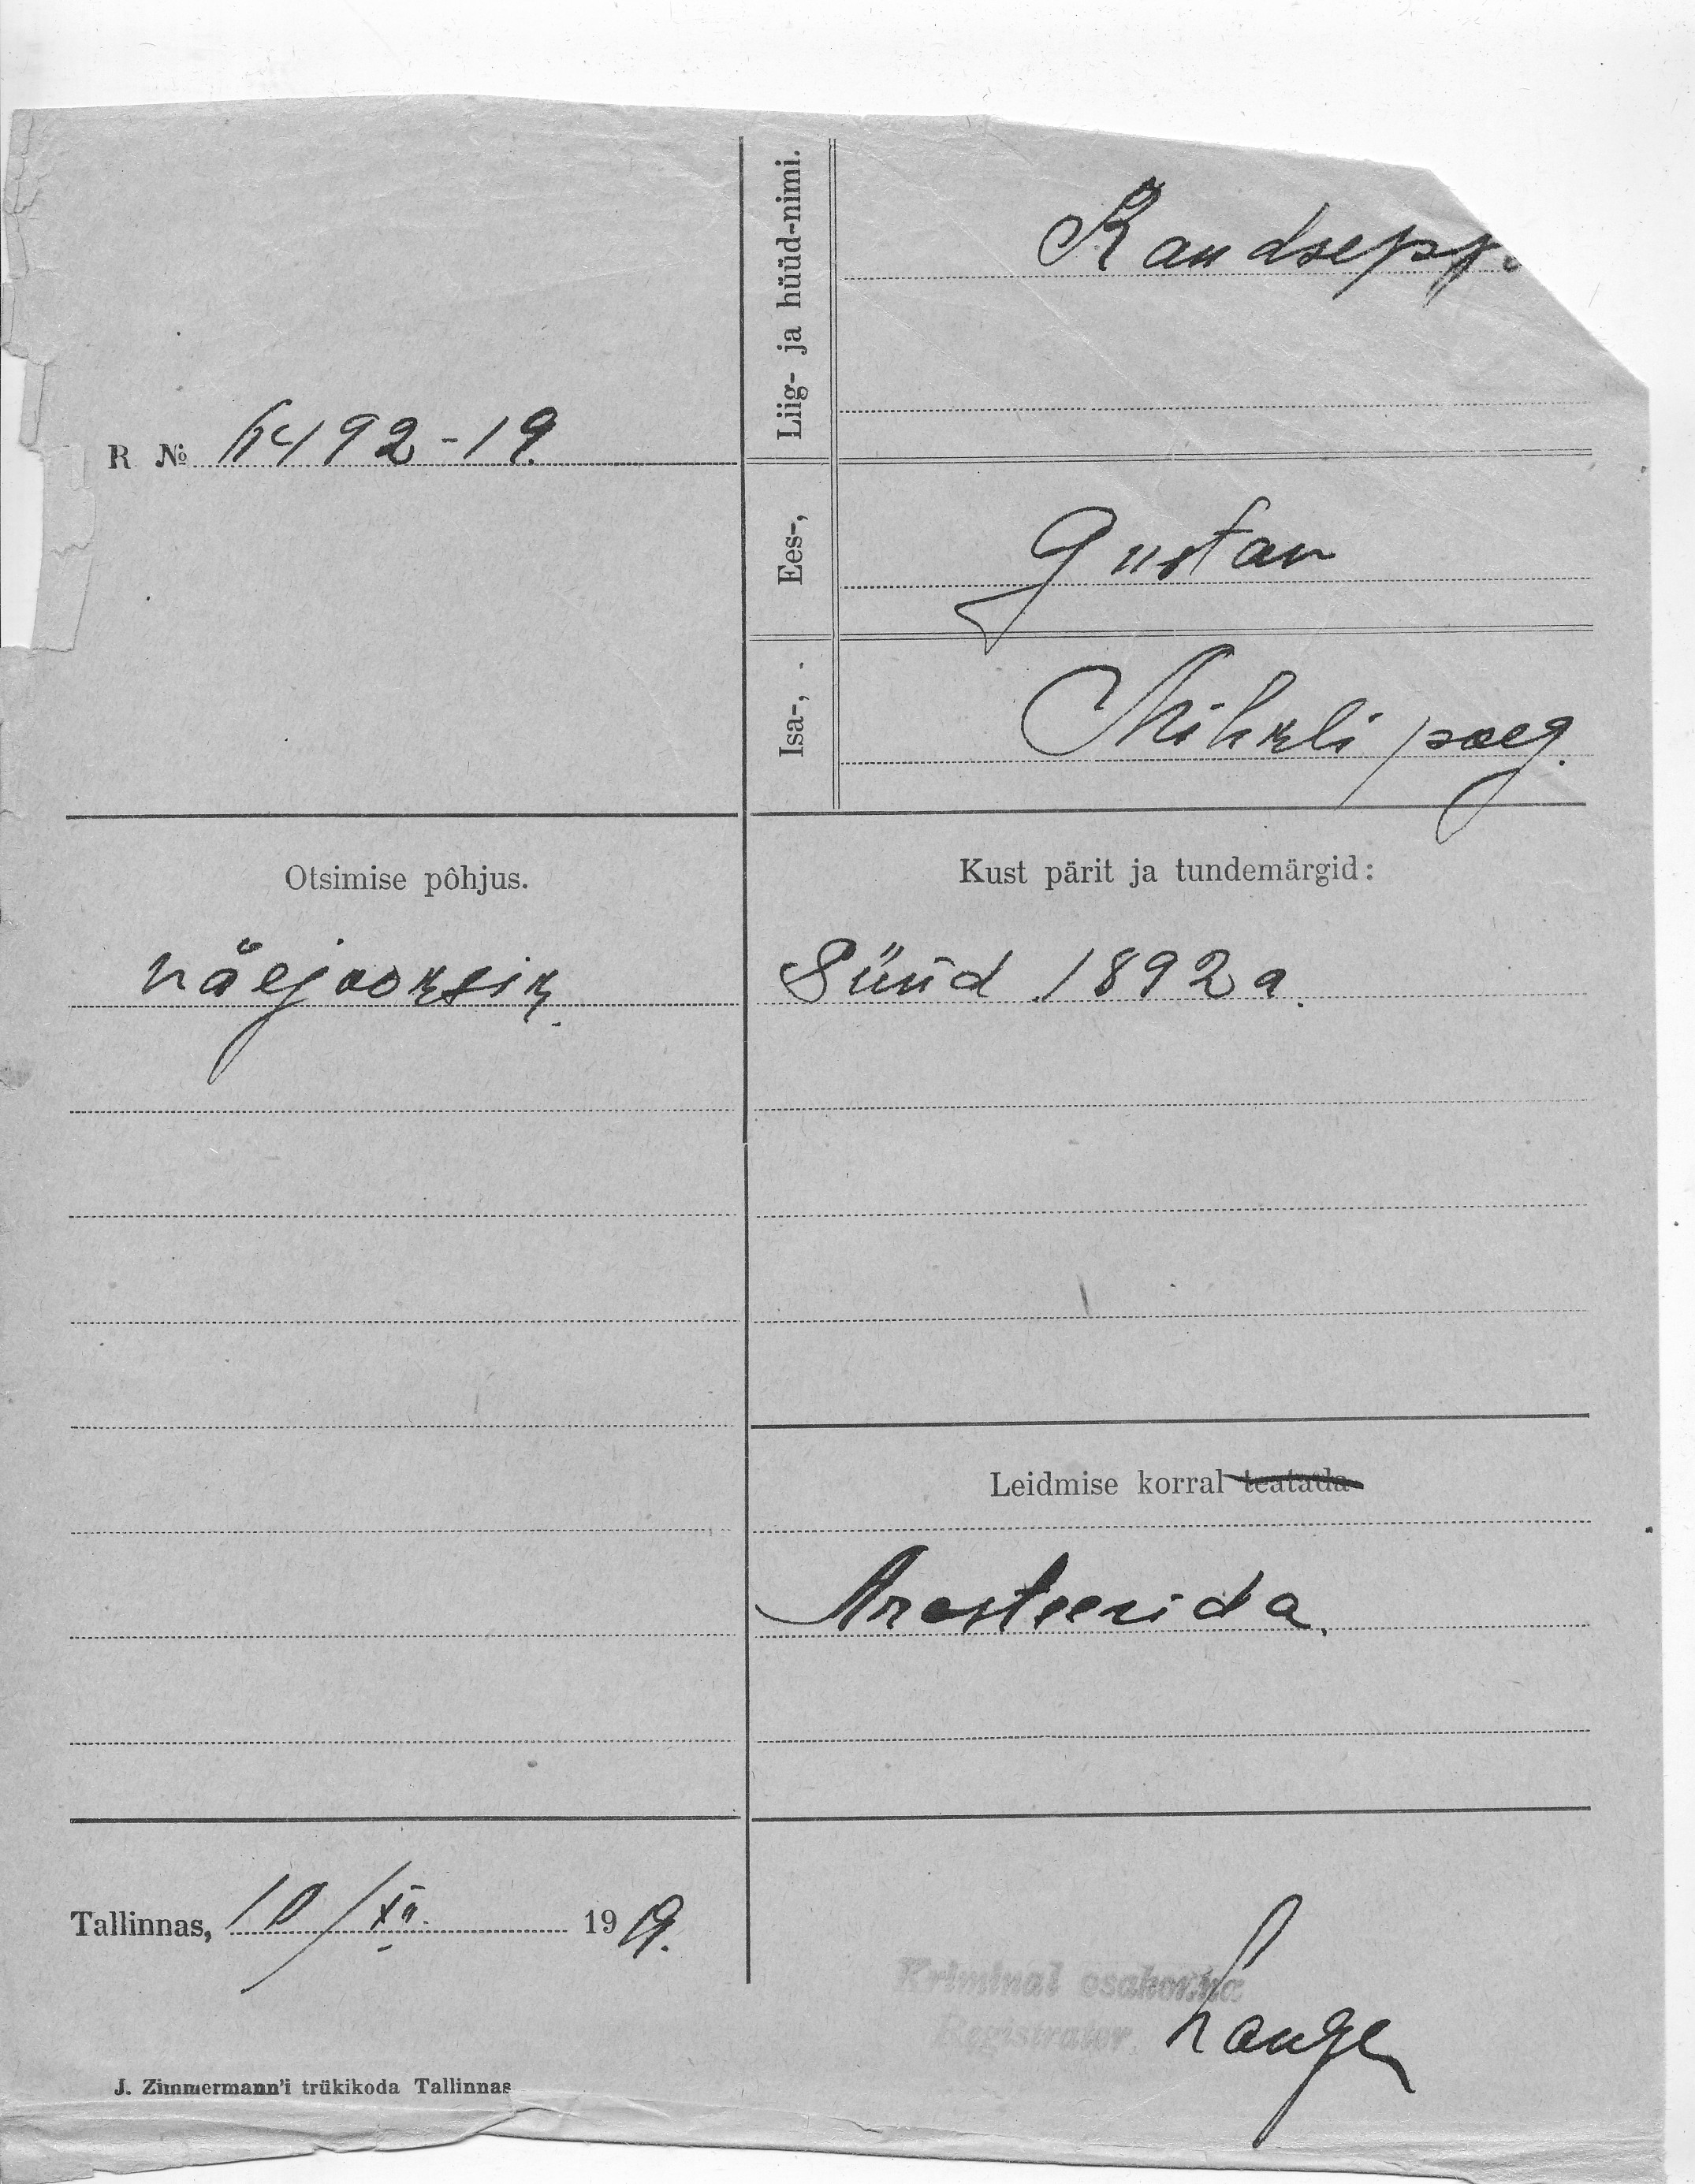 Liig- ja hüüd-nimi.
Randsepp.
R №
492-19.
Ees-,
Gustav
Isa-,
Mihkli poeg.
Otsimise põhjus.
Kust pärit ja tundemärgid:
väejooksik.
Sünd 1892 a.
Leidmise korral teatada
Aresteerida.
Tallinnas, 10/XII. 1919.
Kriminal osakonna
Registrator.
Lange
J. Zimmermann'i trükikoda Tallinnas